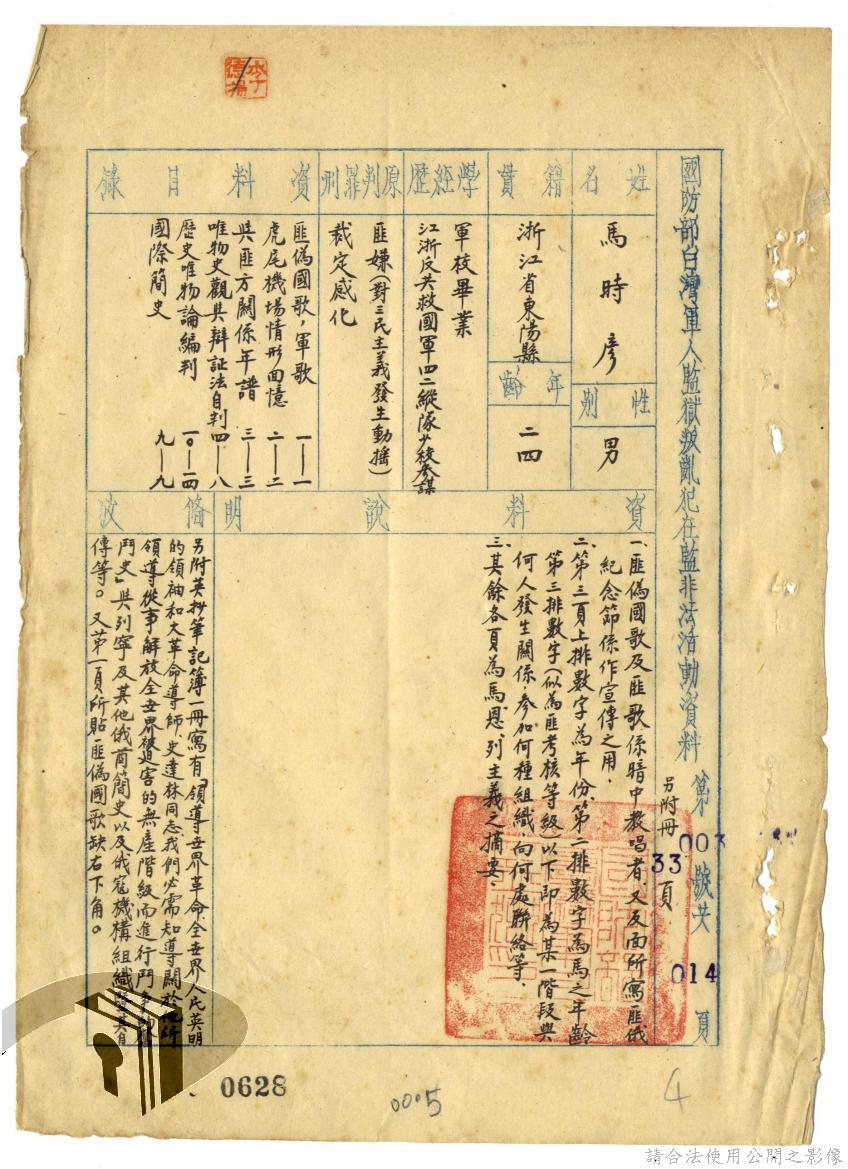 國防部台灣軍人監獄叛亂犯在監非法活動資料 第 003 號共 014 頁
另附冊 33 頁
姓名
馬時彥
性別
男
籍貫
浙江省東陽縣
年齡
二四
學經歷
軍校畢業
江浙反共救國軍四二縱隊少校參謀
原判罪刑
匪嫌(對三民主義發生動搖)
裁定感化
資料目錄
匪偽國歌,軍歌 一—一
虎尾機場情形回憶 二—二
與匪方關係年譜 三—三
唯物史觀與辯証法自判 四—八
歷史唯物論編判 一○—一四
國際簡史 九—九
資料說明
一、匪偽國歌及匪歌係暗中教唱者、又反面所寫匪俄
紀念節係作宣傳之用.
二、第三頁上排數字為年份、第二排數字為馬之年齡
第三排數字(似為匪考核等級)以下即為某一階段與
何人發生關係.參加何種組織.向何處聯絡等、
三、其餘各頁為馬、恩、列主義之摘要、
備攷
另附英抄筆記簿一冊寫有「領導世界革命、全世界人民英明
的領袖和大革命導師、史達林同志、我們必需知導關於他所
領導從事解放全世界被迫害的無產階級而進行鬥爭的
鬥史」與列寧及其他俄酋簡史以及俄寇機構組織
傳等。又第一頁所貼匪偽國歌缺右下角。
0628
0005
4
請合法使用公開之影像